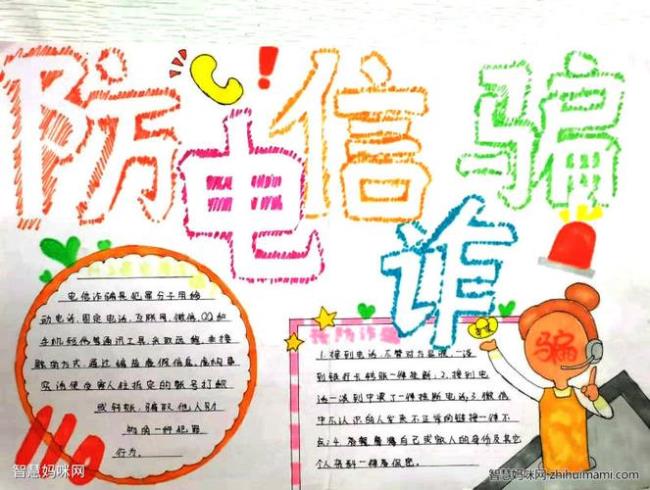 防电信诈骗
110
电信诈骗是犯罪分子用移
动电话,固定电话,互联网,微信,QQ和
手机短信等通讯工具,采取远程,非接
触的方式,通过编造虚假信息,虚构事
实诱使受害人往指定的账号打款
或转账,骗取他人财
物的一种犯罪
行为。
预防诈骗
1.接到电话,不管对方是谁,一谈
到银行卡转账一律挂断;2.接到电
话一谈到中奖了一律挂断电话;3.微信
中不认识的人发来不正常的链接一律不
点;4.
自己家家人的身份及其它
个人
一律要保密。
骗
智慧妈咪网
智慧妈咪网·zhihuimami.com